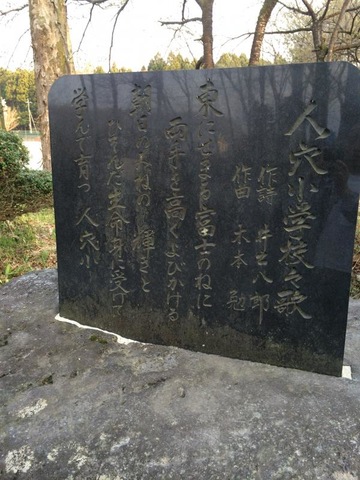 人穴小学校々歌
作詩 八郎
作曲 木本 勉
東にせまる富士のねに
両手を高くよびかける
朝日のみねの輝きと
ひそんだ生命身に受けて
学んで育つ人穴小